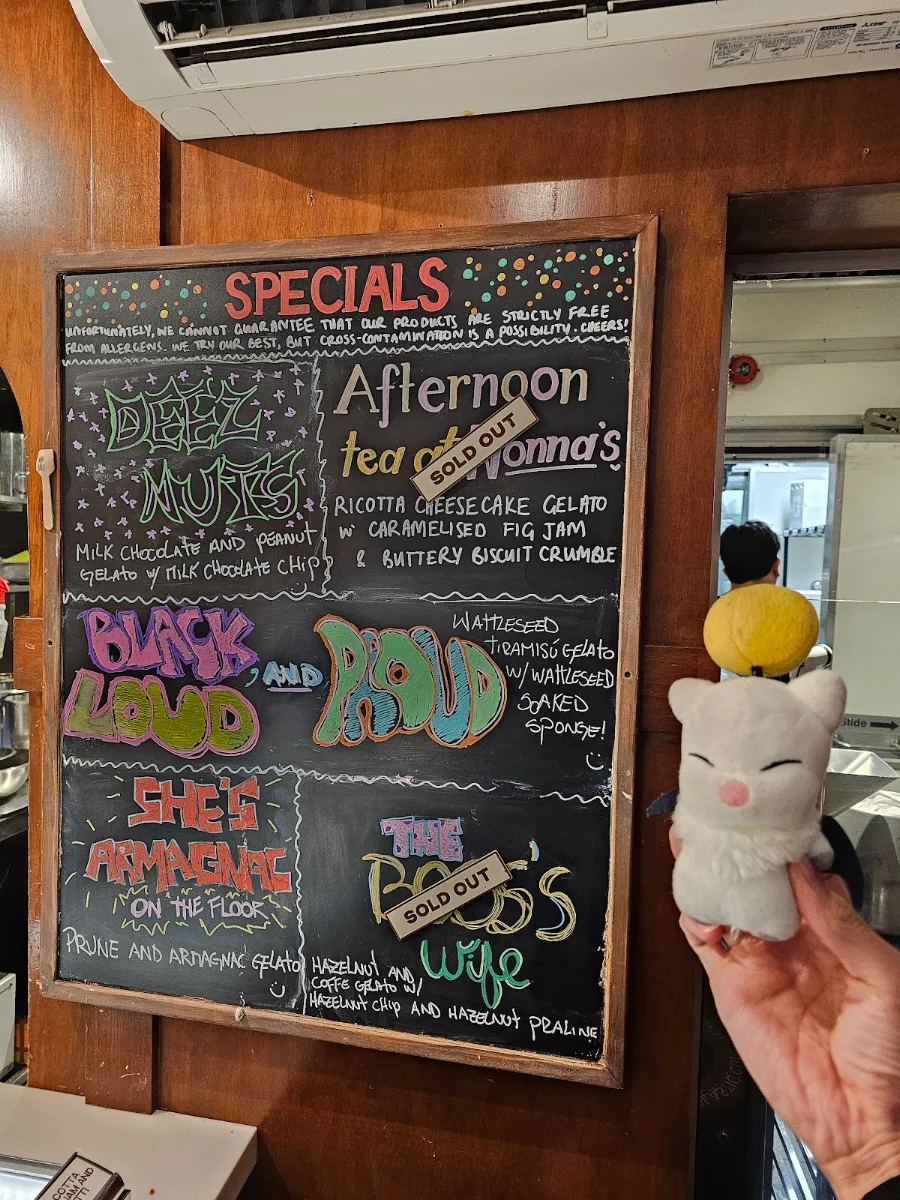 SPECIALS
UNFORTUNATELY, WE CANNOT GUARANTEE THAT OUR PRODUCTS ARE STRICTLY FREE
FROM ALLERGENS. WE TRY OUR BEST, BUT CROSS-CONTAMINATION IS A POSSIBILITY. CHEERS!
DEEZ
NUTS
MILK CHOCOLATE AND PEANUT
GELATO W/ MILK CHOCOLATE CHIP
Afternoon
tea at Nonna's
SOLD OUT
RICOTTA CHEESECAKE GELATO
W/ CARAMELISED FIG JAM
& BUTTERY BISCUIT CRUMBLE
BLACK
LOUD
, AND
PROUD
WATTLESEED
TIRAMISÚ GELATO
W/ WATTLESEED
SOAKED
SPONGE!
SHE'S
ARMAGNAC
ON THE FLOOR
PRUNE AND ARMAGNAC GELATO
THE
BOSS'S
SOLD OUT
Wife
HAZELNUT AND
COFFE GELATO W/
HAZELNUT CHIP AND HAZELNUT PRALINE
Slide